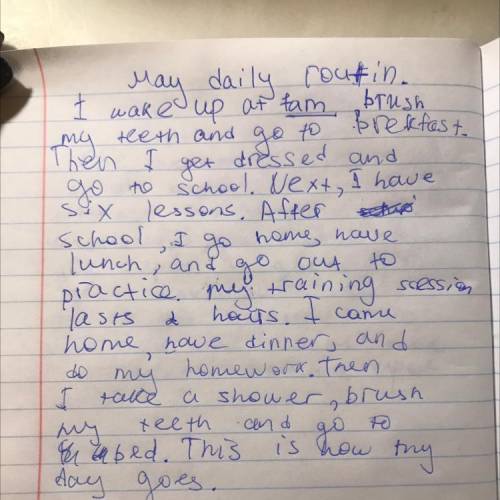 May daily routin.
I wake up at 7am brush
my teeth and go to brekfast.
Then I get dressed and
go to school. Next, I have
six lessons. After
school, I go home, have
lunch, and go out to
practice. my training scession
lasts 2 hours. I came
home, have dinner, and
do my homework. Then
I take a shower, brush
my teeth and go to
bed. This is how my
day goes.